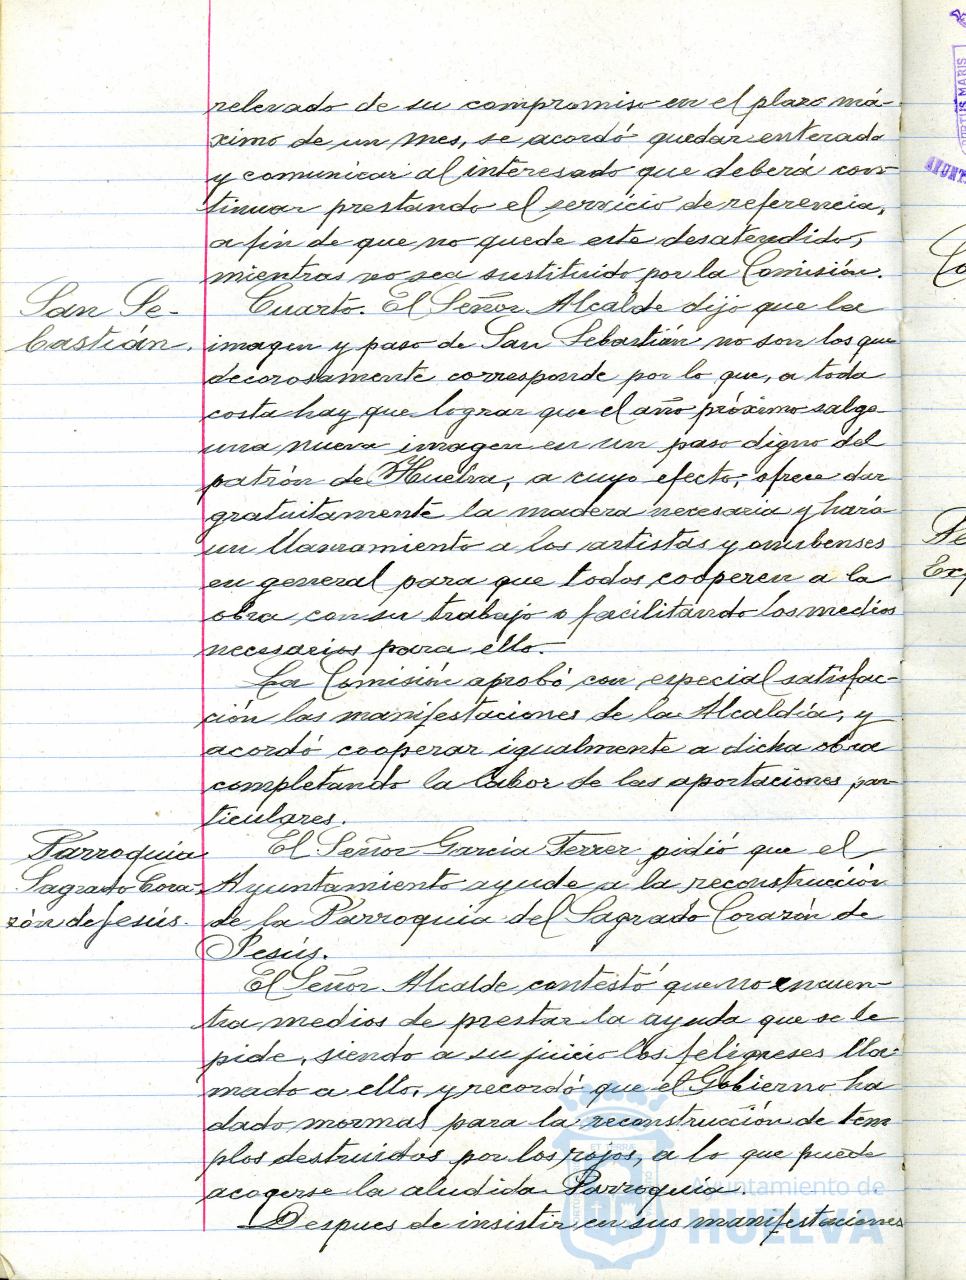 relevado de su compromiso en el plazo má-
ximo de un mes, se acordó quedar enterado
y comunicar al interesado que deberá con-
tinuar prestando el servicio de referencia,
a fin de que no quede este desatendido,
mientras no sea sustituido por la Comisión.
San Se-
bastián.
Cuarto. El Señor Alcalde dijo que la
imagen y paso de San Sebastián no son los que
decorosamente corresponde por lo que, a toda
costa hay que lograr que el año próximo salga
una nueva imagen en un paso digno del
patrón de Huelva, a cuyo efecto, ofrece dar
gratuitamente la madera necesaria y hará
un llamamiento a los artistas y onubenses
en general para que todos cooperen a la
obra con su trabajo o facilitando los medios
necesarios para ello.
La Comisión aprobó con especial satisfac-
ción las manifestaciones de la Alcaldía, y
acordó cooperar igualmente a dicha obra
completando la labor de las aportaciones par-
ticulares.
Parroquia
Sagrado Cora-
zón de Jesús.
El Señor García Ferrer pidió que el
Ayuntamiento ayude a la reconstrucción
de la Parroquia del Sagrado Corazón de
Jesús.
El Señor Alcalde contestó que no encuen-
tra medios de prestar la ayuda que se le
pide, siendo a su juicio los feligreses lla-
mado a ello, y recordó que el Gobierno ha
dado normas para la reconstrucción de tem
plos destruidos por los rojos, a lo que puede
acogerse la aludida Parroquia.
Despues de insistir en sus manifestaciones
Ayuntamiento de
HUELVA